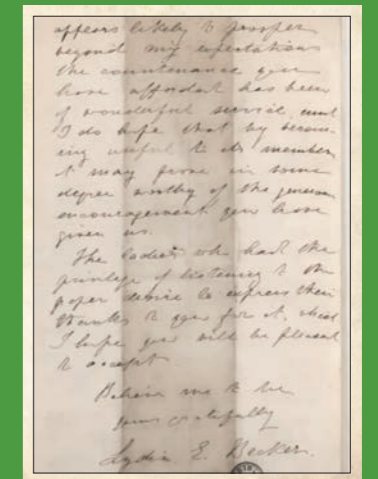 appears likely to prosper
beyond my expectations
the countenance you
have afforded has been
of wonderful service and
I do hope that by becom-
ing useful to its members
it may prove in some
degree worthy of the generous
encouragement you have
given us.
The ladies who had the
privilege of listening to the
paper desire to express their
thanks to you for it, which
I hope you will be pleased
to accept
Believe me to be
yours gratefully
Lydia E. Becker.